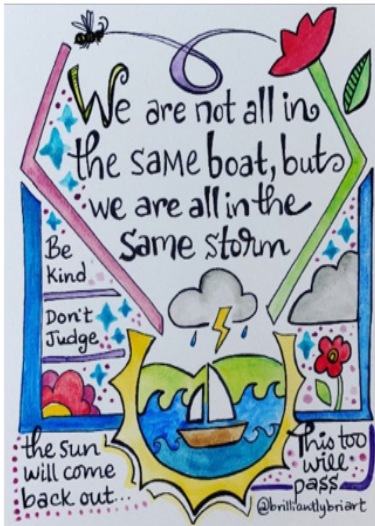 We are not all in
the same boat, but
we are all in the
same storm
Be
kind
Don't
Judge
the sun
will come
back out...
This too
will
pass
@brilliantlybriart